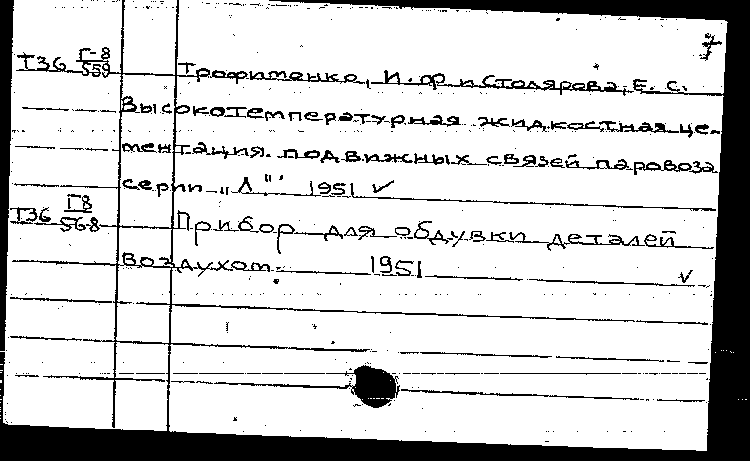 Т36 Г-8/559 Трофименко, И. Ф и Столярова, Е. С.
Высокотемпературная жидкостная це-
ментация подвижных связей паровоза
серии „Л“ 1951 ✓
Т36 Г8/568 Прибор для обдувки деталей
воздухом. 1951 ✓